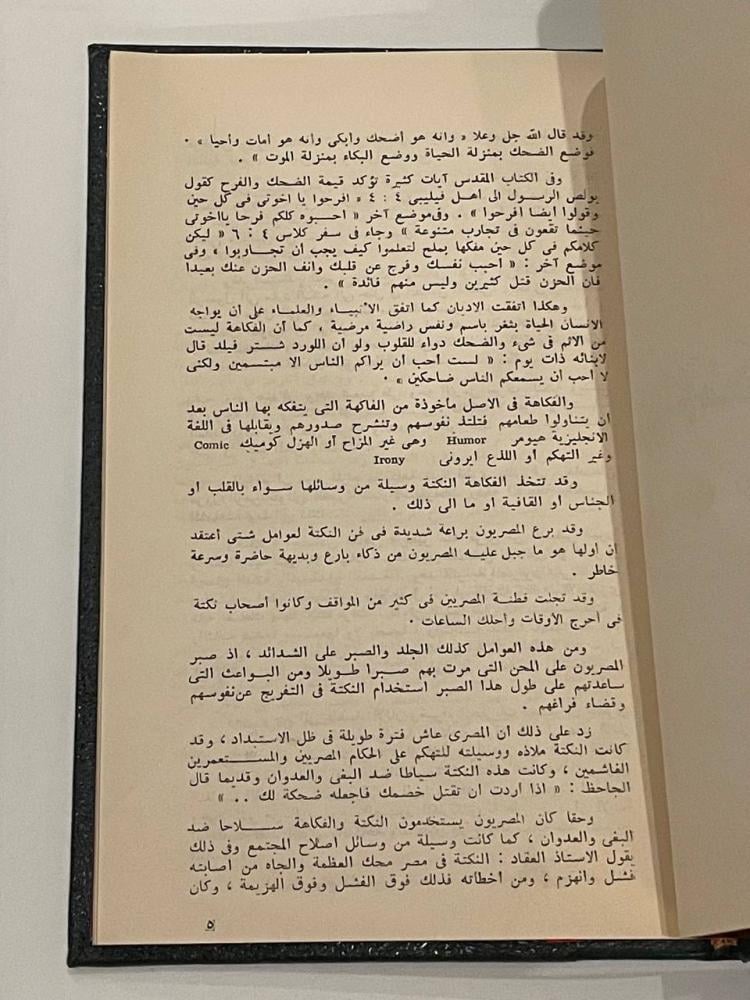 وقد قال الله جل وعلا « وانه هو أضحك وأبكى وانه هو أمات وأحيا » ·
فوضع الضحك بمنزلة الحياة ووضع البكاء بمنزلة الموت » ·
وفى الكتاب المقدس آيات كثيرة تؤكد قيمة الضحك والفرح كقول
بولص الرسول الى أهل فيليبى ٤ : ٤ « افرحوا يا اخوتى فى كل حين
وقولوا ايضا افرحوا » . وفى موضع آخر « احسبوه كلكم فرحا يااخوتى
حينما تقعون فى تجارب متنوعة » وجاء فى سفر كلاس ٤ : ٦ « ليكن
كلامكم فى كل حين مفكها بملح لتعلموا كيف يجب أن تجاوبوا ، وفى
موضع آخر : « أحبب نفسك وفرج عن قلبك وانف الحزن عنك بعيدا
فان الحزن قتل كثيرين وليس منهم فائدة » .
وهكذا اتفقت الاديان كما اتفق الانبياء والعلماء على أن يواجه
الانسان الحياة بثغر باسم ونفس راضية مرضية ، كما أن الفكاهة ليست
من الاثم فى شىء والضحك دواء للقلوب ولو أن اللورد شستر فيلد قال
لابنائه ذات يوم : « لست أحب أن يراكم الناس الا مبتسمين ولكنى
لا أحب أن يسمعكم الناس ضاحكين » ·
والفكاهة فى الاصل مأخوذة من الفاكهة التى يتفكه بها الناس بعد
أن يتناولوا طعامهم فتلتذ نفوسهم وتنشرح صدورهم ويقابلها فى اللغة
الانجليزية هيومر Humor وهى غير المزاح أو الهزل كوميك Comic
وغير التهكم او اللذع ايرونى Irony
وقد تتخذ الفكاهة النكتة وسيلة من وسائلها سواء بالقلب او
الجناس او القافية او ما الى ذلك .
وقد برع المصريون براعة شديدة فى فن النكتة لعوامل شتى أعتقد
ان اولها هو ما جبل عليه المصريون من ذكاء بارع وبديهة حاضرة وسرعة
خاطر .
وقد تجلت فطنة المصريين فى كثير من المواقف وكانوا أصحاب نكتة
فى أحرج الأوقات وأحلك الساعات ·
ومن هذه العوامل كذلك الجلد والصبر على الشدائد ، اذ صبر
المصريون على المحن التى مرت بهم صبرا طويلا ومن البواعث التى
ساعدتهم على طول هذا الصبر استخدام النكتة فى التفريج عن نفوسهم
وقضاء فراغهم .
زد على ذلك ان المصرى عاش فترة طويلة فى ظل الاستبداد ، وقد
كانت النكتة ملاذه ووسيلته للتهكم على الحكام المصريين والمستعمرين
الغاشمين ، وكانت هذه النكتة سياطا ضد البغى والعدوان وقديما قال
الجاحظ : « اذا اردت ان تقتل خصمك فاجعله ضحكة لك .. »
وحقا كان المصريون يستخدمون النكتة والفكاهة سلاحا ضد
البغى والعدوان ، كما كانت وسيلة من وسائل اصلاح المجتمع وفى ذلك
يقول الاستاذ العقاد : النكتة فى مصر محك العظمة والجاه من اصابته
فشل وانهزم ، ومن اخطاته فذلك فوق الفشل وفوق الهزيمة ، وكان
٥